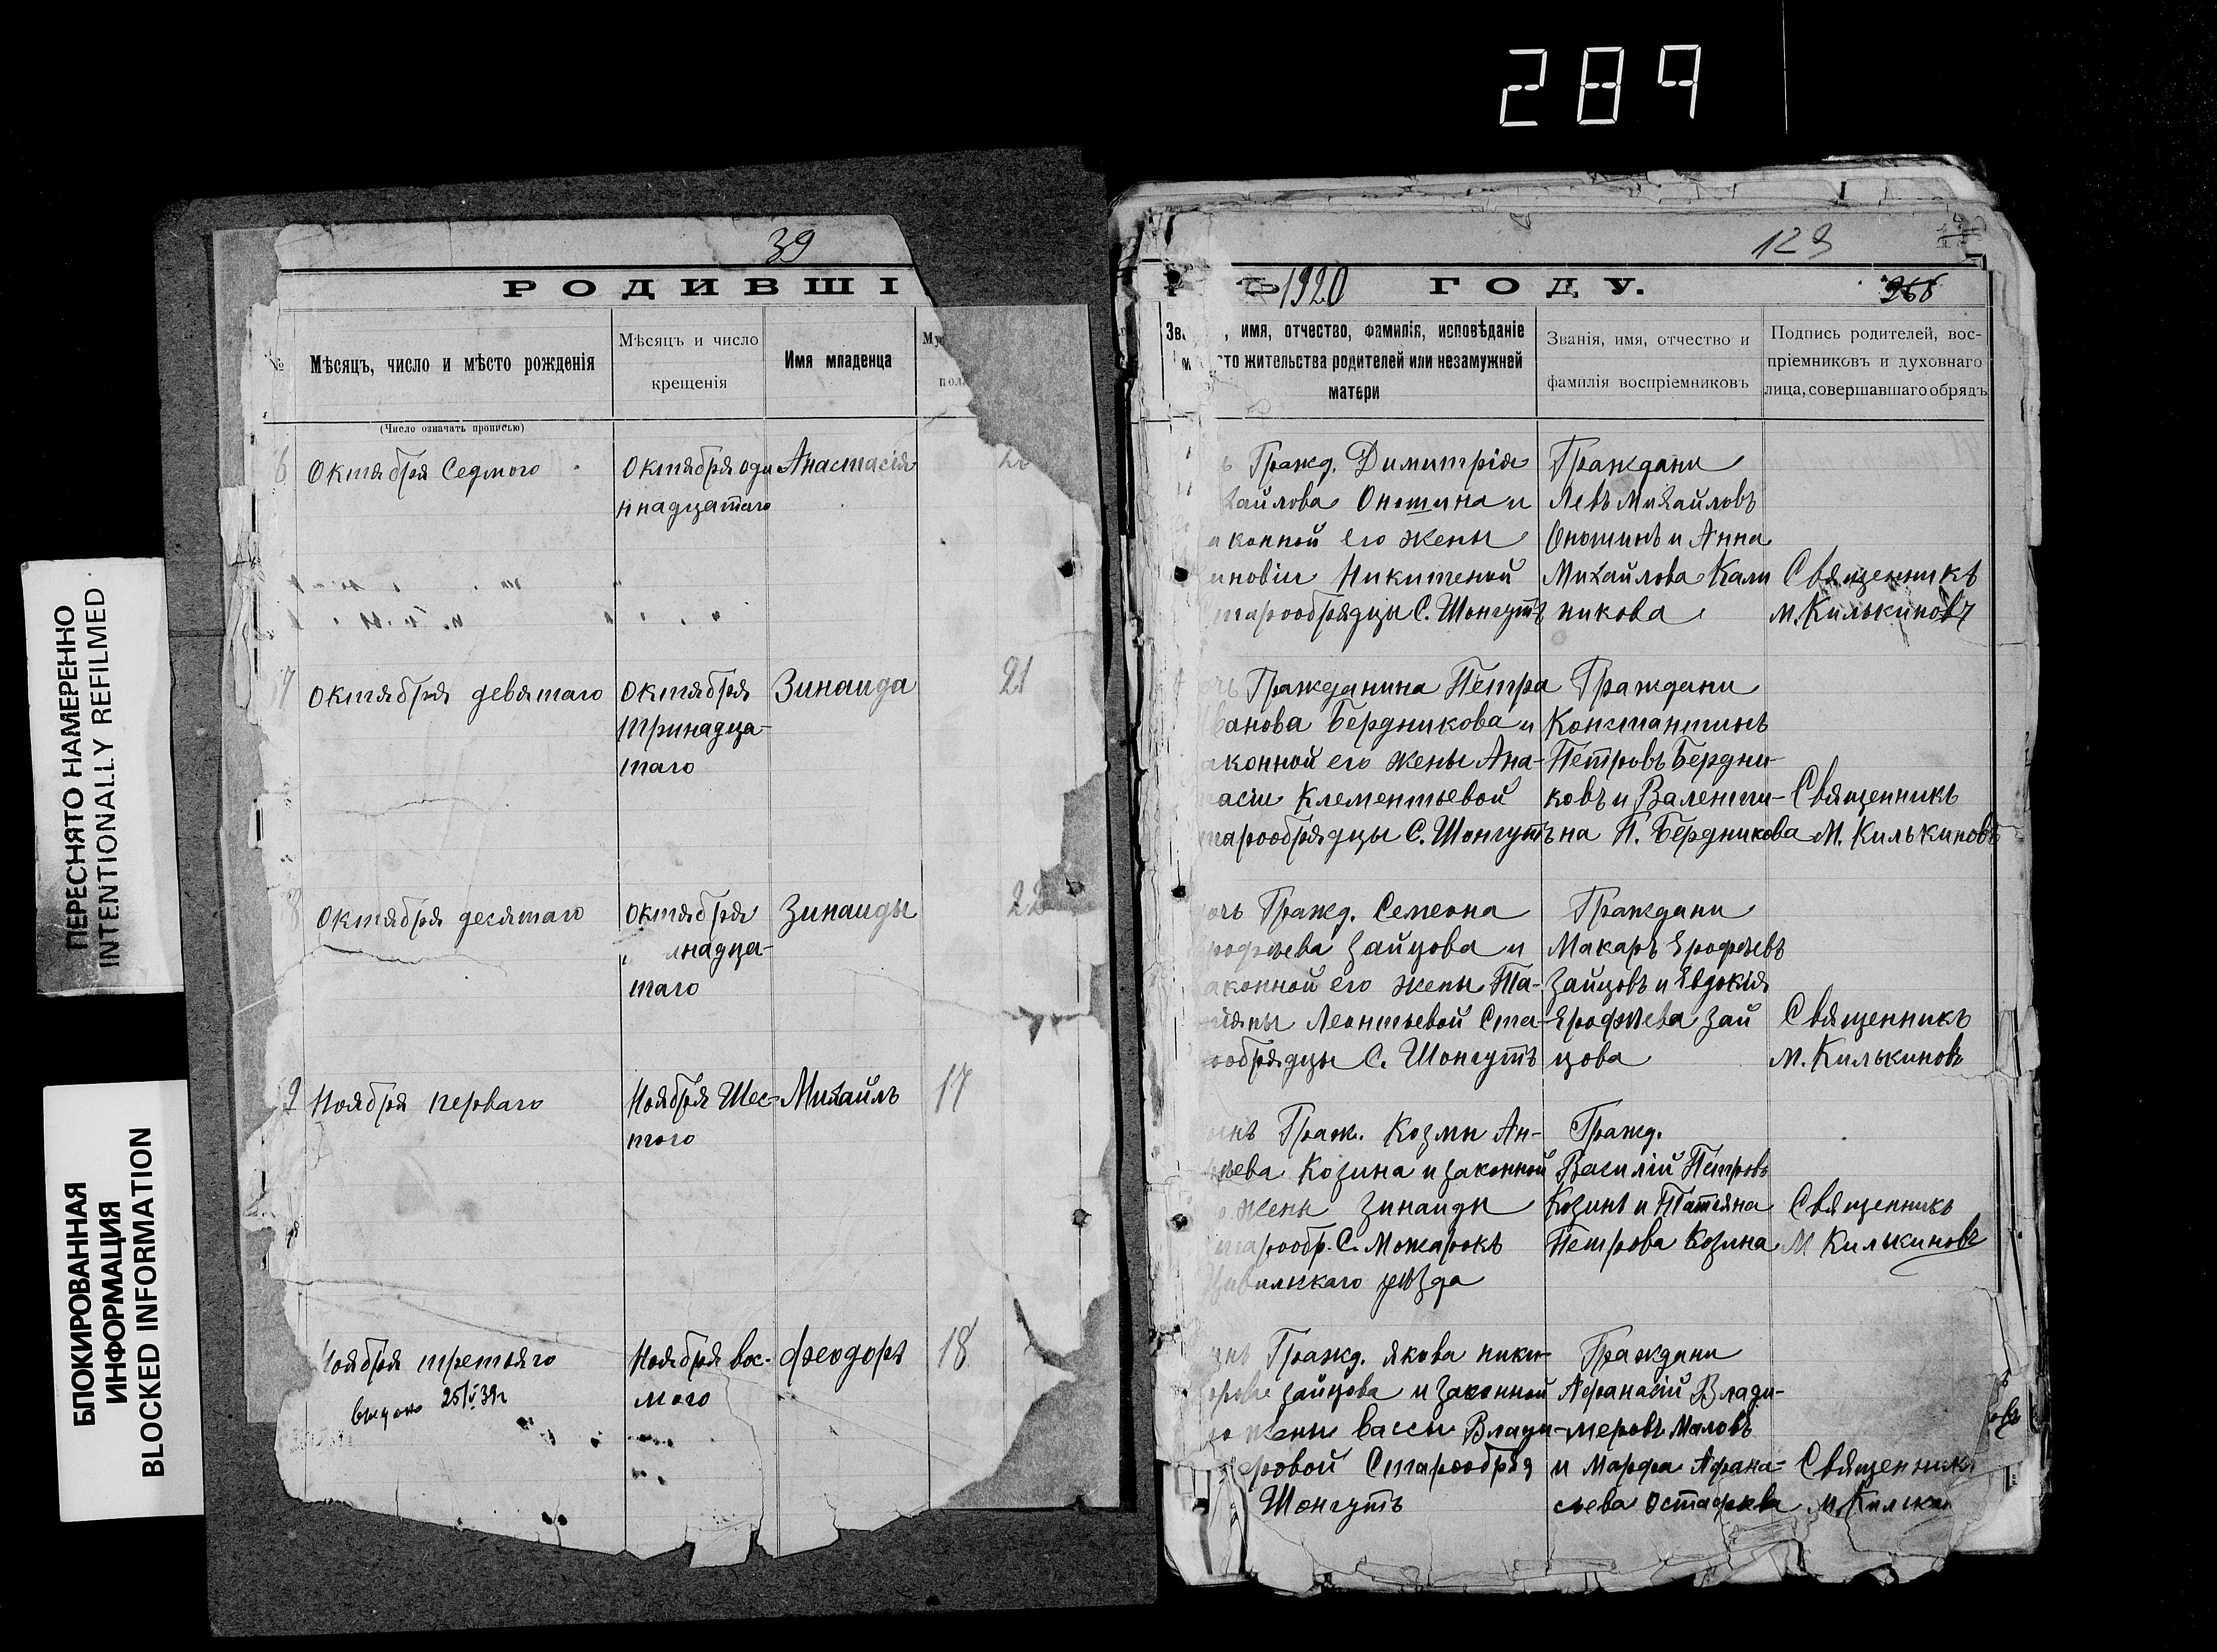 289
ПЕРЕСНЯТО НАМЕРЕННО
INTENTIONALLY REFILMED
БЛОКИРОВАННАЯ
ИНФОРМАЦИЯ
BLOCKED INFORMATION
39
РОДИВШІ
№
Мѣсяцъ, число и мѣсто рожденія
Мѣсяцъ и число
крещенія
Имя младенца
(Число означать прописью)
6
Октября Седмого
Октября оди
ннадцатаго
Анастасія
7
Октября девятаго
Октября
тринадца-
таго
Зинаида
21
8
Октября десятаго
Октября
надца-
таго
Зинаиды
22
9
Ноября перваго
Ноября Шес-
того
Михаилъ
17
Ноября третьяго
выдано 25/V 39г
Ноября вос-
мого
Феодоръ
18
123
Ъ 1920 ГОДУ.
268
имя, отчество, фамилія, исповѣданіе
то жительства родителей или незамужней
матери
Званія, имя, отчество и
фамилія воспріемниковъ
Подпись родителей, вос-
пріемниковъ и духовнаго
лица, совершавшаго обрядъ
Гражд. Димитрія
хайлова Оношина и
аконной его жены
иновіи Никитеной
тарообрядцы С. Шонгутъ
Граждани
Левъ Михайловъ
Оношинъ и Анна
Михайлова Кали
никова
Священникъ
М. Килькиновъ
Гражданина Петра
Иванова Бердникова и
аконной его жены Ана-
тасіи Клементьевой
тарообрядцы С. Шонгутъ
Граждани
Константинъ
Петровъ Бердни-
ковъ и Валенти-
на П. Бердникова
Священникъ
М. Килькиновъ
дочь Гражд. Семеона
Ерофѣева Зайцова и
аконной его жены Та-
тіяны Леонтьевой Ста-
рообрядцы С. Шонгутъ
Граждани
Макаръ Ерофѣевъ
Зайцовъ и Евдокія
Ерофѣева Зай
цова
Священникъ
М. Килькиновъ
сынъ Граж. Козмы Ан-
рѣева Козина и законной
жены Зинаиды
тарообр. С. Можарокъ
Цивильскаго уѣзда
Гражд.
Василій Петровъ
Козинъ и Татьяна
Петрова Козина
Священникъ
М Килькиновъ
сынъ Гражд. Якова ники-
форова Зайцова и Законной
жены Вассы Влади-
меровой Старообряд
Шонгутъ
Граждани
Афанасій Влади-
меровъ Маловъ
и Марфа Афана-
сьева
Священникъ
М. Кильки